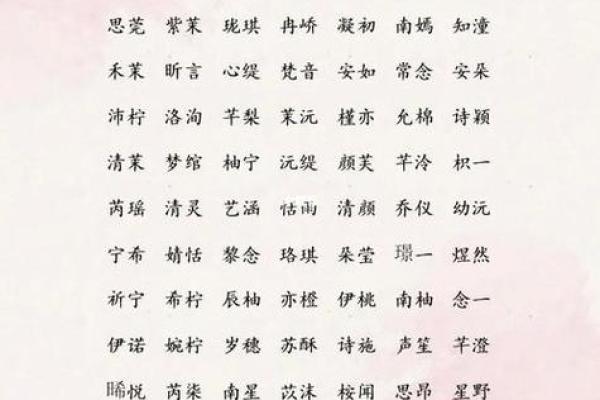 思莞 紫茉 珑琪 冉峤 凝初 南嫣 知潼
禾茉 昕言 心缇 梵音 安如 常念 安朵
沛柠 洛洵 芊梨 茉沅 槿亦 允棉 诗颖
清茉 梦绾 柚宁 沅缇 颜芙 芊泠 枳一
芮瑶 清灵 艺涵 恬雨 清颜 乔仪 幼沅
宁希 婧恬 黎念 珞琪 朵莹 璟一 煜然
祈宁 希柠 辰柚 亦橙 伊桃 南柚 念一
伊诺 婉柠 岁穗 苏酥 诗施 声笙 芊澄
晞悦 芮柒 南星 苡沫 桉闻 思昂 星野